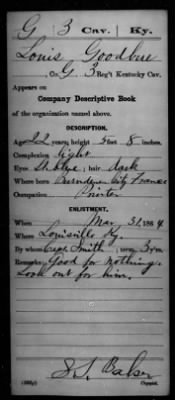 G | 3 Cav. | Ky.
Louis Goodbue
, Co. G, 3 Reg't Kentucky Cav.
Appears on
Company Descriptive Book
of the organization named above.
DESCRIPTION.
Age 22 years; height 5 feet 8 inches.
Complexion light
Eyes ; hair dark
Where born City France
Occupation
ENLISTMENT.
When Mar 31, 1864
Where Louisville Ky.
By whom Capt Smith; term 3 y'rs.
Remarks: Good for nothing.
Look out for him.
Baker
Copyist.